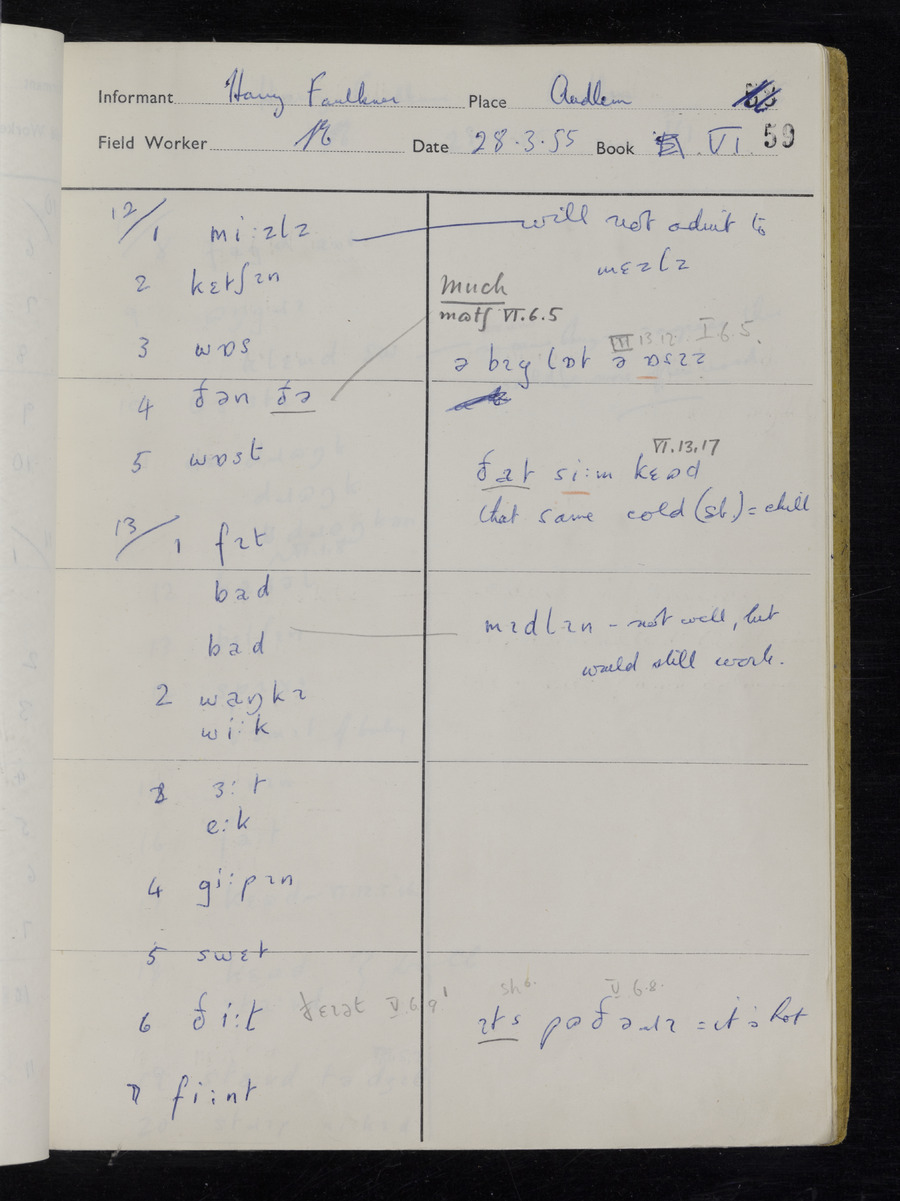 Informant Harry Faulkner Place Audlem
59
Field Worker Date 28.3.55 Book VI.
12/1 mi:zlz
will not admit to
mɛzlz
2 kɛtʃɪn
much
mɷtʃ VI.6.5
3 wɒs
III 13 12. I.6.5.
ə bɪg lɒt ə ɒsɪz
4 ðən ðə
5 wɒst
VI.13,17
ðat si:m kɛɷd
that same cold (sb.) = chill
13/1 fɪt
bad
bad
mɪdlɪn - not well, but
would still work.
2 waŋkɪ
wi:k
3 ɜ:t
e:k
4 gi:pɪn
5 swɛt
6 ði:t
V.6.9
V 6.8.
ɪts = it's hot
7 fi:nt